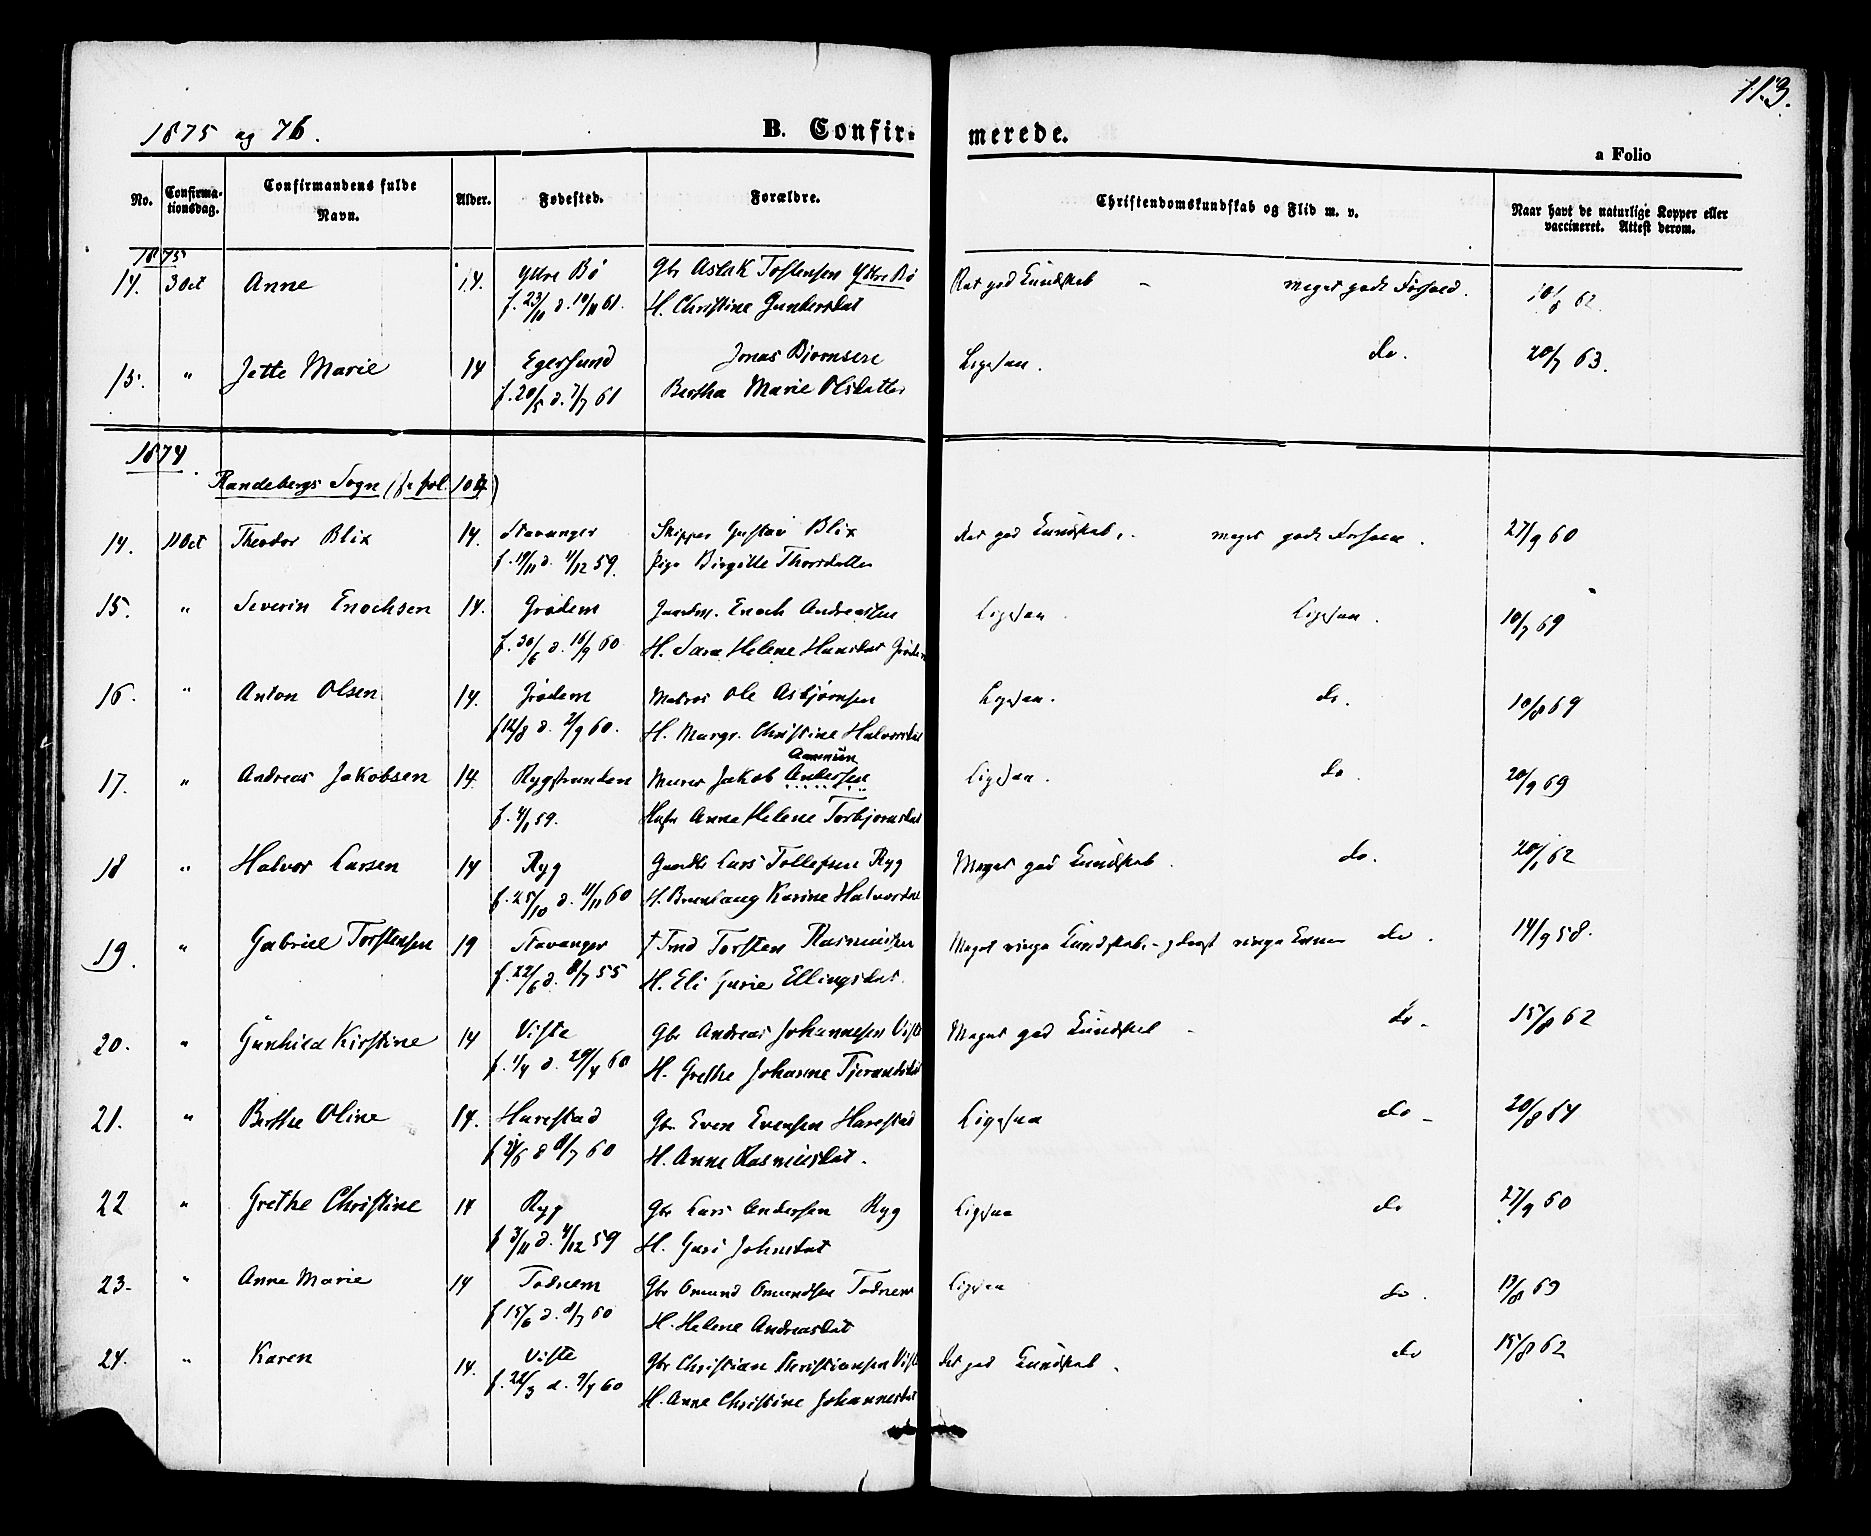 113.
1875 og 76.
B. Confirmerede.
a Folio
No.
Confirmationsdag.
Confirmandens fulde Navn.
Alder.
Fødested.
Forældre.
Christendomskundskab og Flid m. v.
Naar havt de naturlige Kopper eller vaccineret. Attest derom.
1875
14. 3 Oct Anne 14. Yttre Bø Gbr Aslak Tostensen Yttre Bø Ret god Kundskab - meget godt Forhold. 10/8 62.
f. 23/10 d. 10/11 61. H. Christine Gundersdat
15. " Jette Marie 14 Egersund Jonas Bjørnsen Ligesaa. do. 20/7 63.
f. 20/5 d. 7/7 61 Bertha Marie Olsdatter
1874.
Randebergs Sogn (fr fol. 104)
14. 11 Oct Theodor Blix 14. Stavanger Skipper Gustav Blix Ret god Kundskab. meget godt Forhold. 27/9 60
f. 19/11 d. 4/12 59. Pige Birgitte Thorsdatter
15. " Severin Enochsen 14. Grødem Enoch Andreassen Ligesaa. Ligesaa. 10/7 69
f. 30/6 d. 16/9 60 H. Sara Helene Hansdat Grødem
16. " Anton Olsen 14. Grødem Matros Ole Asbjørnsen Ligesaa. do. 10/8 69
f 12/8 d. 2/9 60. H. Margr. Christine Halvorsdat
17. " Andreas Jakobsen 14. Rygstranden Murer Jakob Andersen Ligesaa. do. 20/9 69
f. 4/1 59. Anne Helene Torbjørnsdat
18 " Halvor Larsen 14 Ryg Lars Tollefsen Ryg Meget god Kundskab. do. 20/1 62
f. 25/10 d. 11/11 60 H. Karine Halvorsdat
19. " Gabriel Torstensen 19 Stavanger † Torsten Rasmussen Meget ringe Kundskab. - ringe Evner do. 14/9 58.
f. 22/6 d. 8/7 55 H. Eli Gurie Ellingsdat.
20. " Gunhild Kirstine 14 Viste Gbr Andreas Johannesen Viste Meget god Kundskab - do - 15/8 62
f. 1/4 d. 29/4 60 H. Grethe Johanne Tjerandsdat
21. " Berthe Oline 14. Harestad Gbr. Even Evensen Harestad Ligesaa do - 20/8 64
d 8/7 60 H. Anne Rasmusdat.
22 " Grethe Christine 14 Ryg Gbr Lars Andersen Ryg Ligesaa do 27/9 60
f 3/11 d. 4/12 59 H. Guri Johnsdat
23. " Anne Marie 14 Todnem Gbr Omund Omundsen Todnem Ligesaa do. 13/8 69
f 15/6 d. 8/7 60 H. Helene Andreasdat
24. " Karen 14. Viste Gbr Christian Christiansen Viste Ret god Kundskab. do 15/8 62
f. 22/3 d. 9/4 60 H. Anne Christine Johannesdat